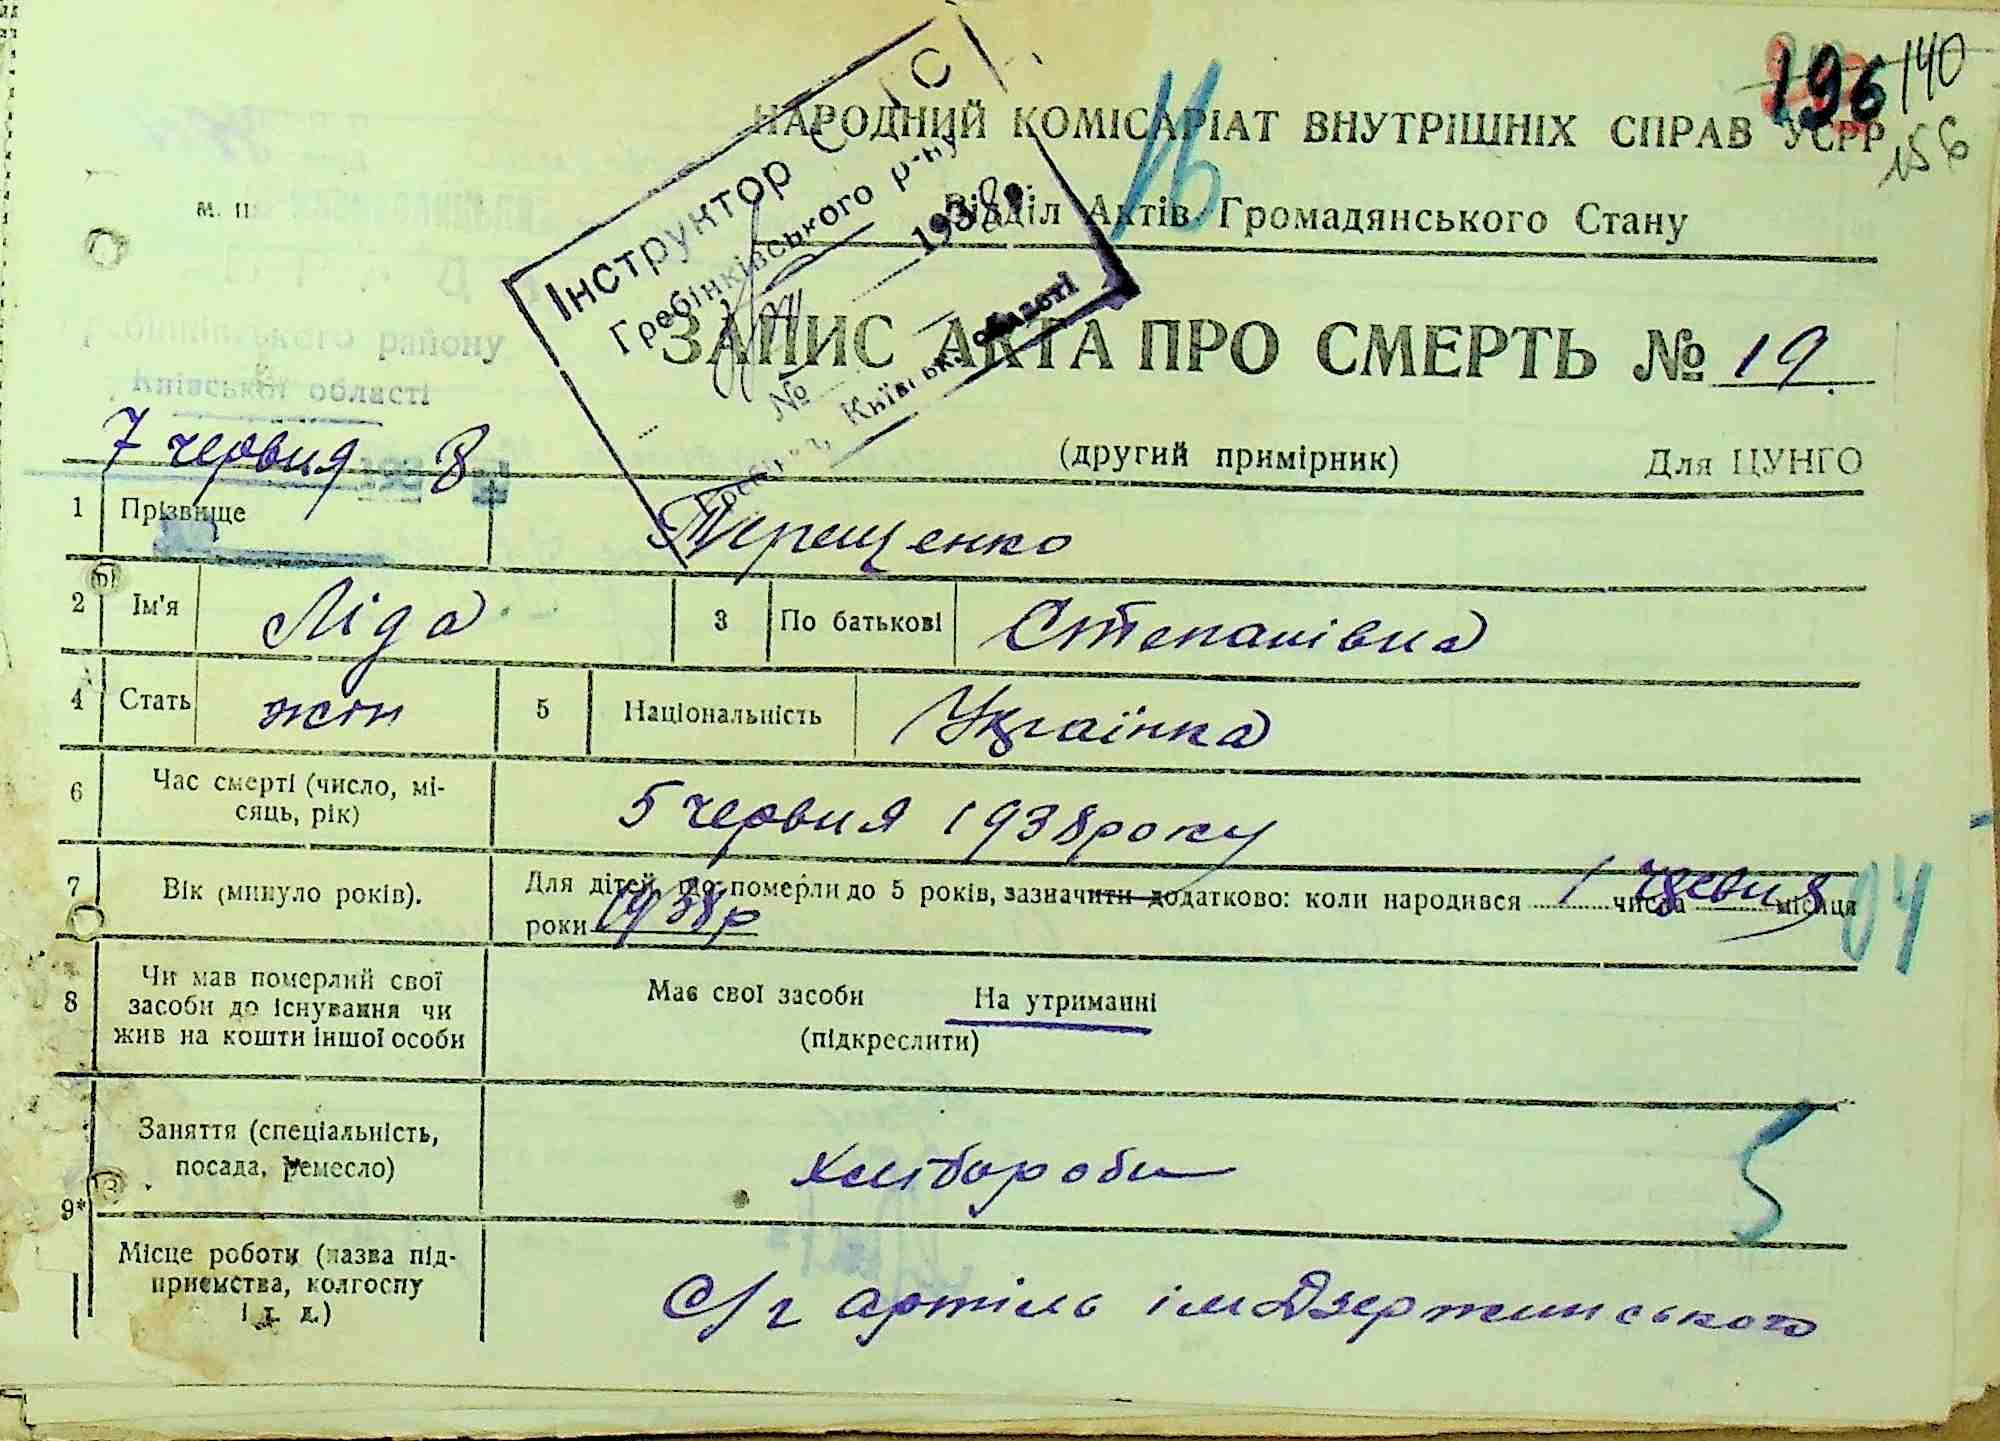 196 140
156
16
НАРОДНИЙ КОМІСАРІАТ ВНУТРІШНІХ СПРАВ УСРР
м. п.
Відділ Актів Громадянського Стану
Інструктор
Гребінківського р-ну
1938 р.
№
Київської області
району
Київської області
ЗАПИС АКТА ПРО СМЕРТЬ № 19
7 червня 8
(другий примірник) Для ЦУНГО
1 Прізвище Терещенко
2 Ім'я Ліда 3 По батькові Степанівна
4 Стать жін 5 Національність Українка
6 Час смерті (число, мі-
сяць, рік) 5 червня 1938 року
7 Вік (минуло років). Для дітей, що померли до 5 років, зазначити додатково: коли народився 1 числа червня місяця
роки 1938р
04
8 Чи мав померлий свої
засоби до існування чи
жив на кошти іншої особи
Має свої засоби На утриманні
(підкреслити)
9* Заняття (спеціальність,
посада, ремесло) хлібороби
5
Місце роботи (назва під-
приємства, колгоспу
і т. д.) С/г артіль ім Дзержинського